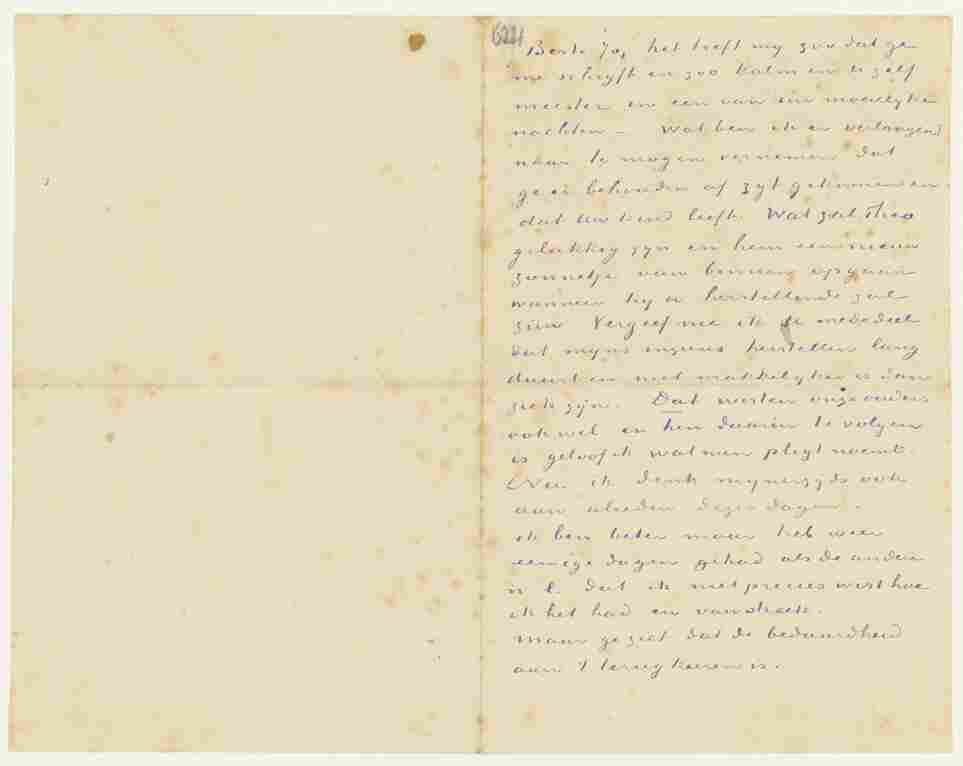 622
Beste Jo, het treft my zoo dat ge
me schryft en zoo kalm en U zelf
meester in een van uw moeielyke
nachten – Wat ben ik er verlangend
naar te mogen vernemen dat
ge er behouden af zyt gekomen en
dat Uw kind leeft. Wat zal Theo
gelukkig zyn en hem een nieuw
zonnetje van binnen opgaan
wanneer hy U herstellende zal
zien Vergeef me ik U mededeel
dat myns inziens herstellen lang
duurt en niet makkelyker is dan
ziek zyn. Dat wisten onze ouders
ook wel en hen daarin te volgen
is geloof ik wat men pligt noemt.
Nu ik denk mynerzyds ook
aan ulieden dezer dagen.
ik ben beter maar heb weer
eenige dagen gehad als de andere
n l. dat ik niet precies wist hoe
ik het had en van streek.
Maar ge ziet dat de bedaardheid
aan 't terug keeren is.